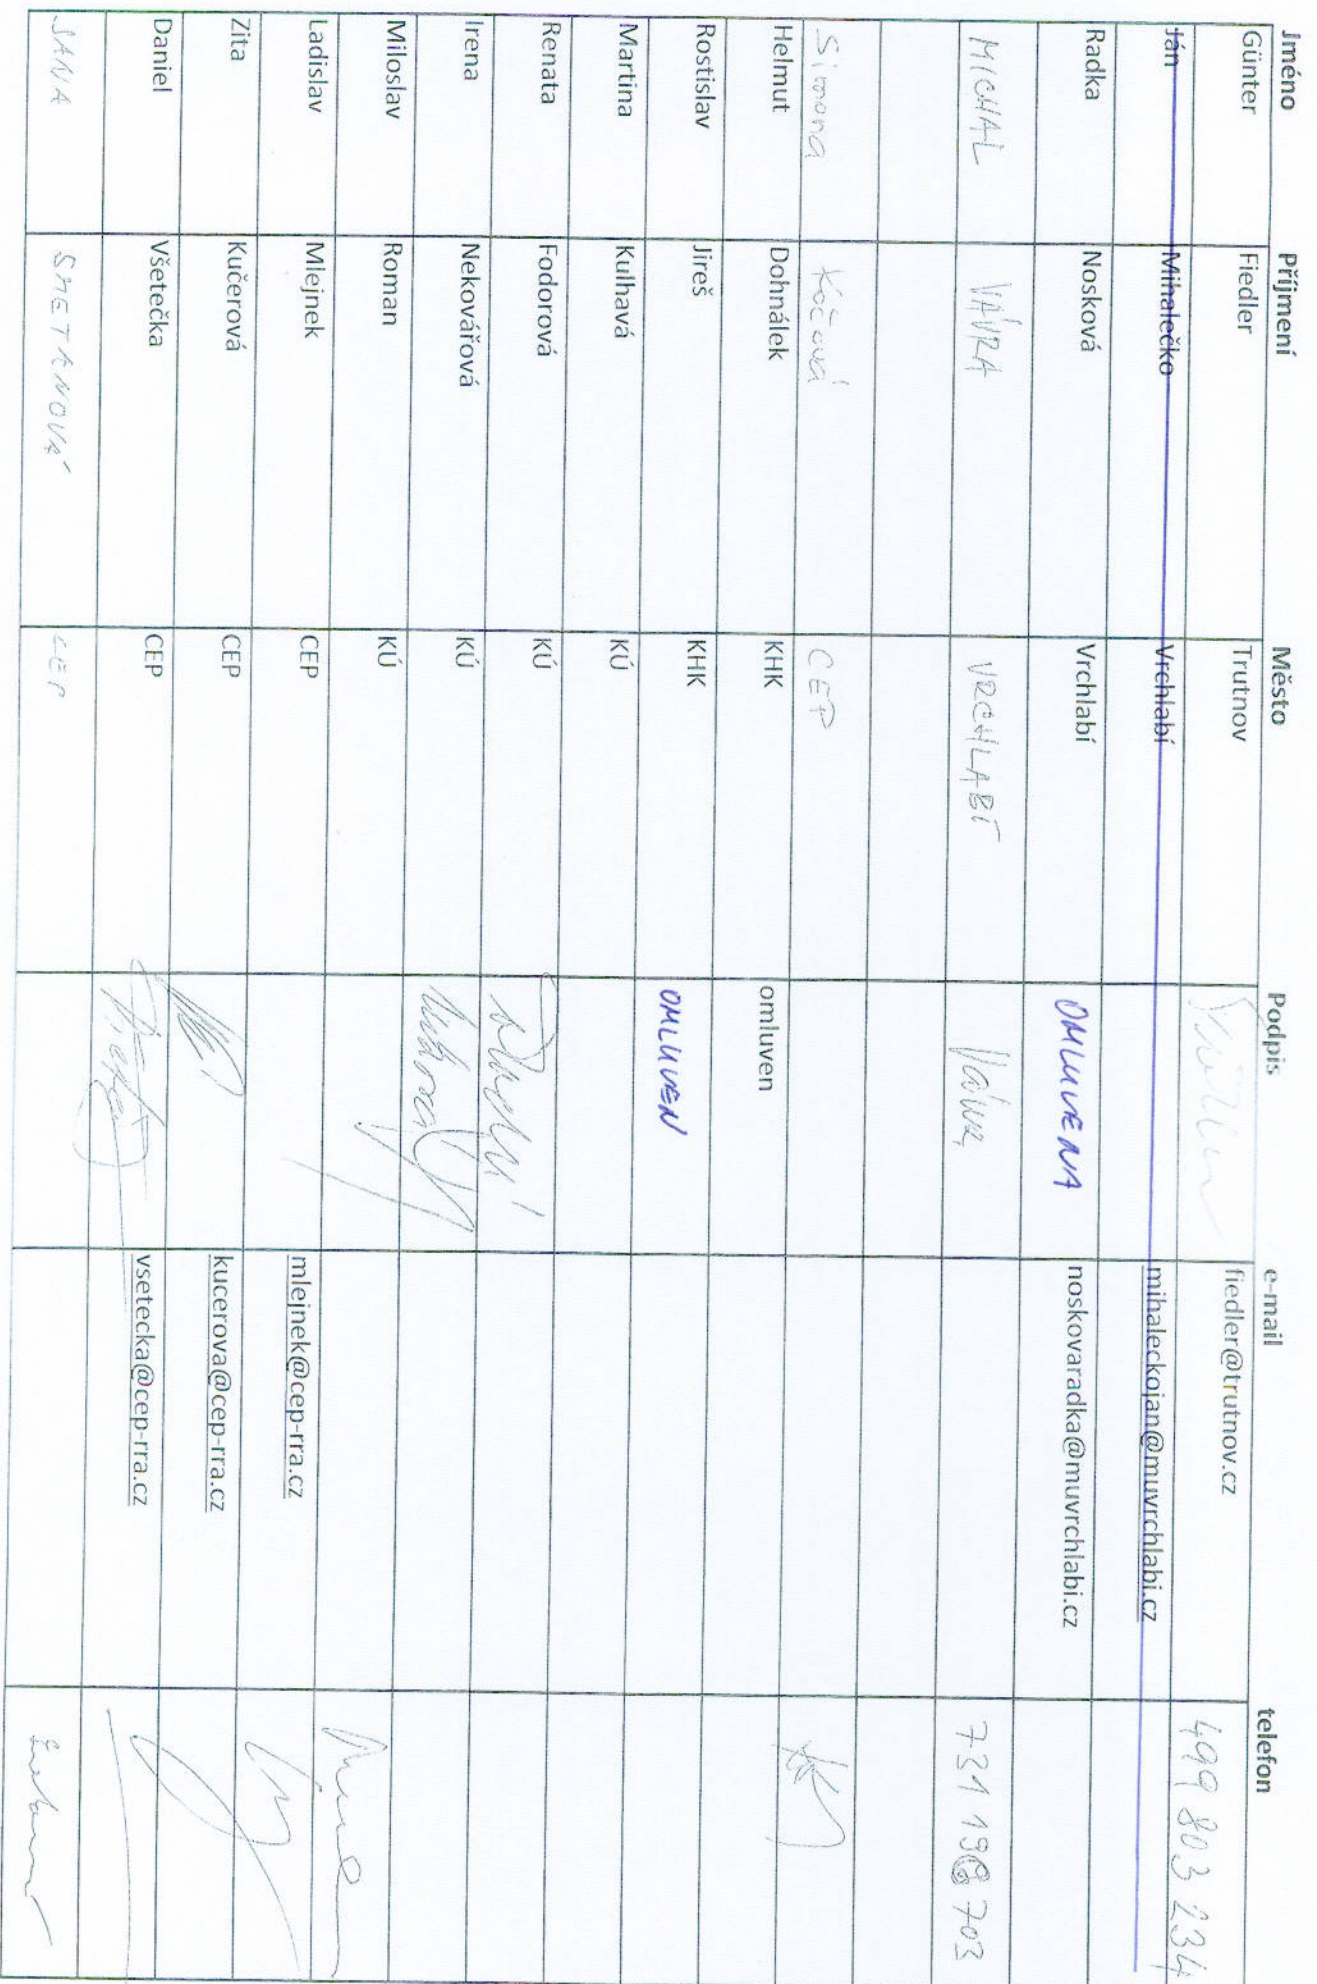 Jméno Příjmení Město Podpis e-mail telefon
Günter Fiedler Trutnov fiedler@trutnov.cz 499 803 234
Ján Mihalečko Vrchlabí mihaleckojan@muvrchlabi.cz
Radka Nosková Vrchlabí OMLUVENA noskovaradka@muvrchlabi.cz
MICHAL VÁVRA VRCHLABÍ Vávra 731 198 703
Simona Kočová CEP
Helmut Dohnálek KHK omluven
Rostislav Jireš KHK OMLUVEN
Martina Kulhavá KÚ
Renata Fodorová KÚ
Irena Nekovářová KÚ
Miloslav Roman KÚ
Ladislav Mlejnek CEP mlejnek@cep-rra.cz
Zita Kučerová CEP kucerova@cep-rra.cz
Daniel Všetečka CEP vsetecka@cep-rra.cz
JANA SMETANOVÁ CEP